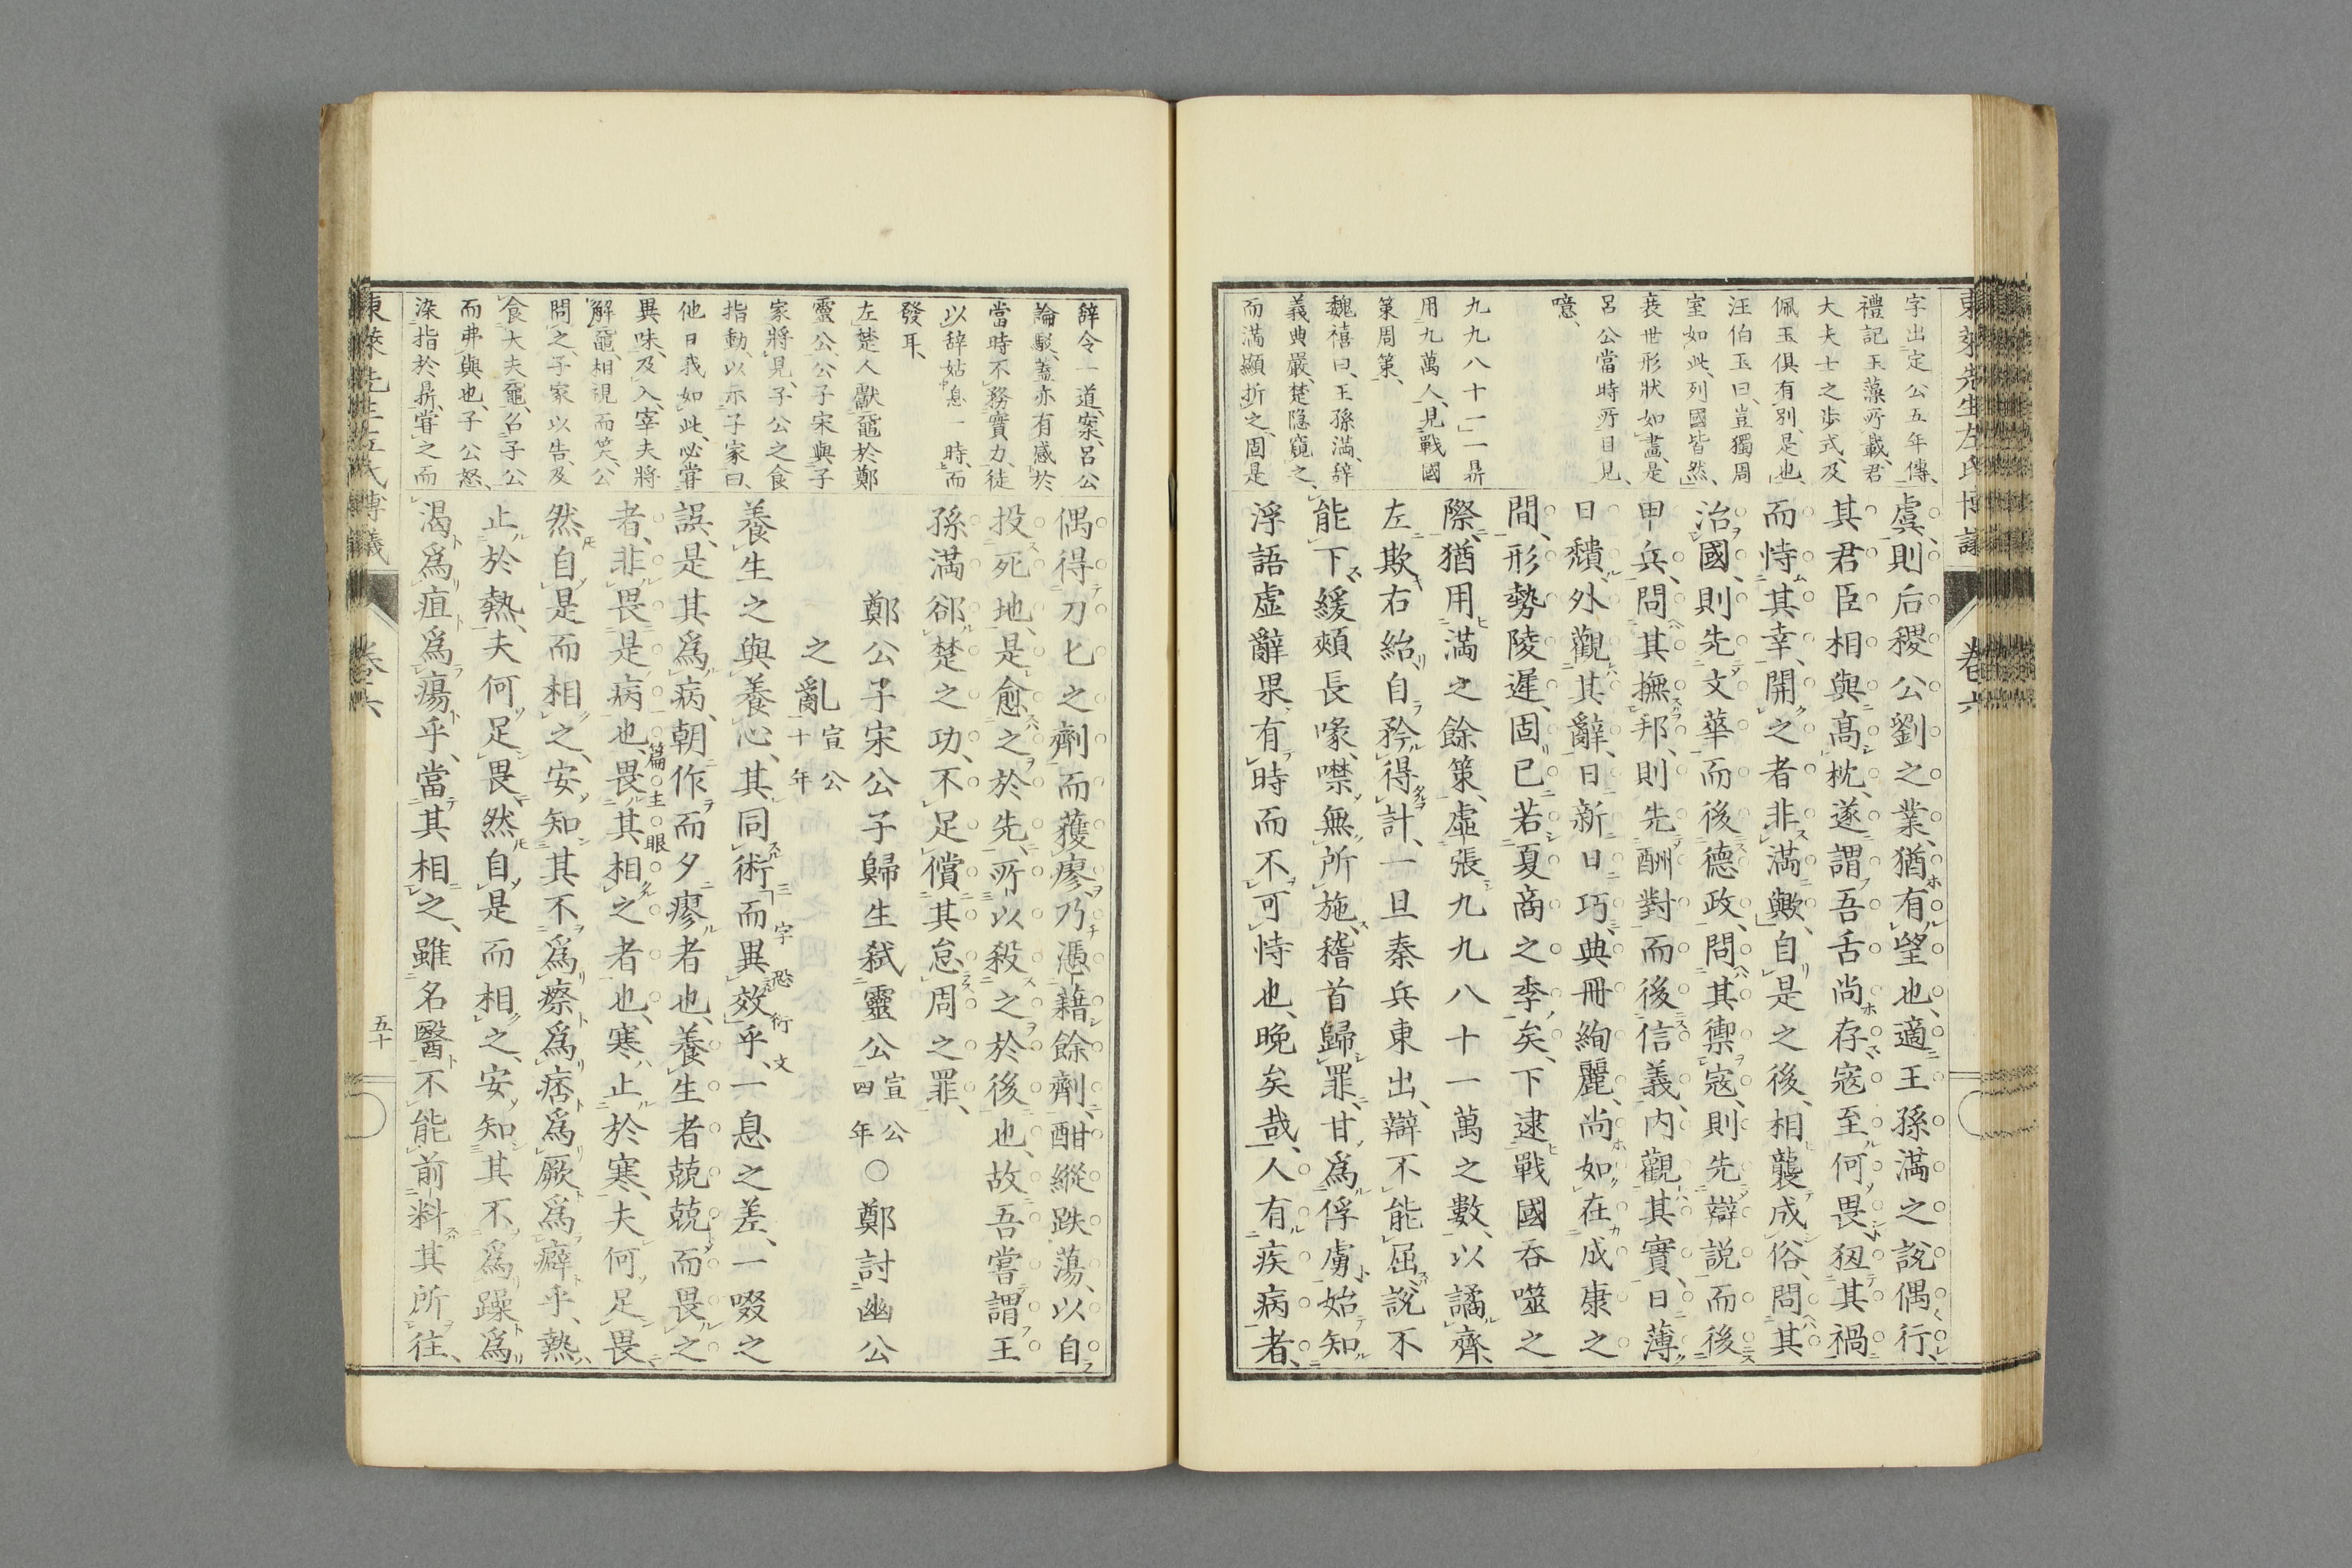 東萊先生左氏博議
卷六
字出定公五年傳、
禮記玉藻所載、君
大夫士之步式、及
佩玉俱有別、是也、
汪伯玉曰、豈獨周
室如此、列國皆然、
衰世形狀如畫、是
呂公當時所目見、
噫、
九九八十一、一鼎
用九萬人、見戰國
策周策、
魏禧曰、王孫滿、辭
義典嚴、楚隱窺之、
而滿顯折之、固是
虞、則后稷公劉之業、猶有望也、適王孫滿之說偶行、
其君臣相與高枕、遂謂吾舌尚存、寇至何畏、狃其禍
而恃其幸、開之者非滿歟、自是之後、相襲成俗、問其
治國、則先文華而後德政、問其禦寇、則先辯說而後
甲兵、問其撫邦、則先酬對而後信義、內觀其實、日薄
日穨、外觀其辭、日新日巧、典冊絢麗、尚如在成康之
間、形勢陵遲、固已若夏商之季矣、下逮戰國吞噬之
際、猶用滿之餘策、虛張九九八十一萬之數、以譎齊、
左欺右紿、自矜得計、一旦秦兵東出、辯不能屈、說不
能下、緩頰長喙、噤無所施、稽首歸罪、甘爲俘虜、始知
浮語虛辭、果有時而不可恃也、晚矣哉、人有疾病者、
辭令一道、案、呂公
論駁、蓋亦有感於
當時不務實力、徒
以辭姑息一時、而
發耳、
左、楚人獻黿於鄭
靈公、公子宋與子
家將見、子公之食
指動、以示子家曰、
他日我如此、必嘗
異味、及入、宰夫將
解黿、相視而笑、公
問之、子家以告、及
食大夫黿、召子公
而弗與也、子公怒、
染指於鼎、嘗之而
偶得刀匕之劑、而獲廖、乃憑藉餘劑、酣縱跌蕩、以自
投死地、是愈之於先、所以殺之於後也、故吾嘗謂王
孫滿郤楚之功、不足償其怠周之罪、
鄭公子宋公子歸生弒靈公宣公四年○鄭討幽公
之亂宣公十年
養生之與養心、其同術而異效乎、一息之差、一啜之
三字恐衍文
誤、是其爲病、朝作而夕瘳者也、養生者兢兢而畏之
者、非畏是病也、畏其相之者也、寒止於寒、夫何足畏、
篇主眼
然自是而相之、安知其不爲瘵爲痞爲厥爲癖乎、熱
止於熱、夫何足畏、然自是而相之、安知其不爲躁爲
渴爲疽爲瘍乎、當其相之、雖名醫不能前料其所往、
東萊先生左氏博議
卷六
五十